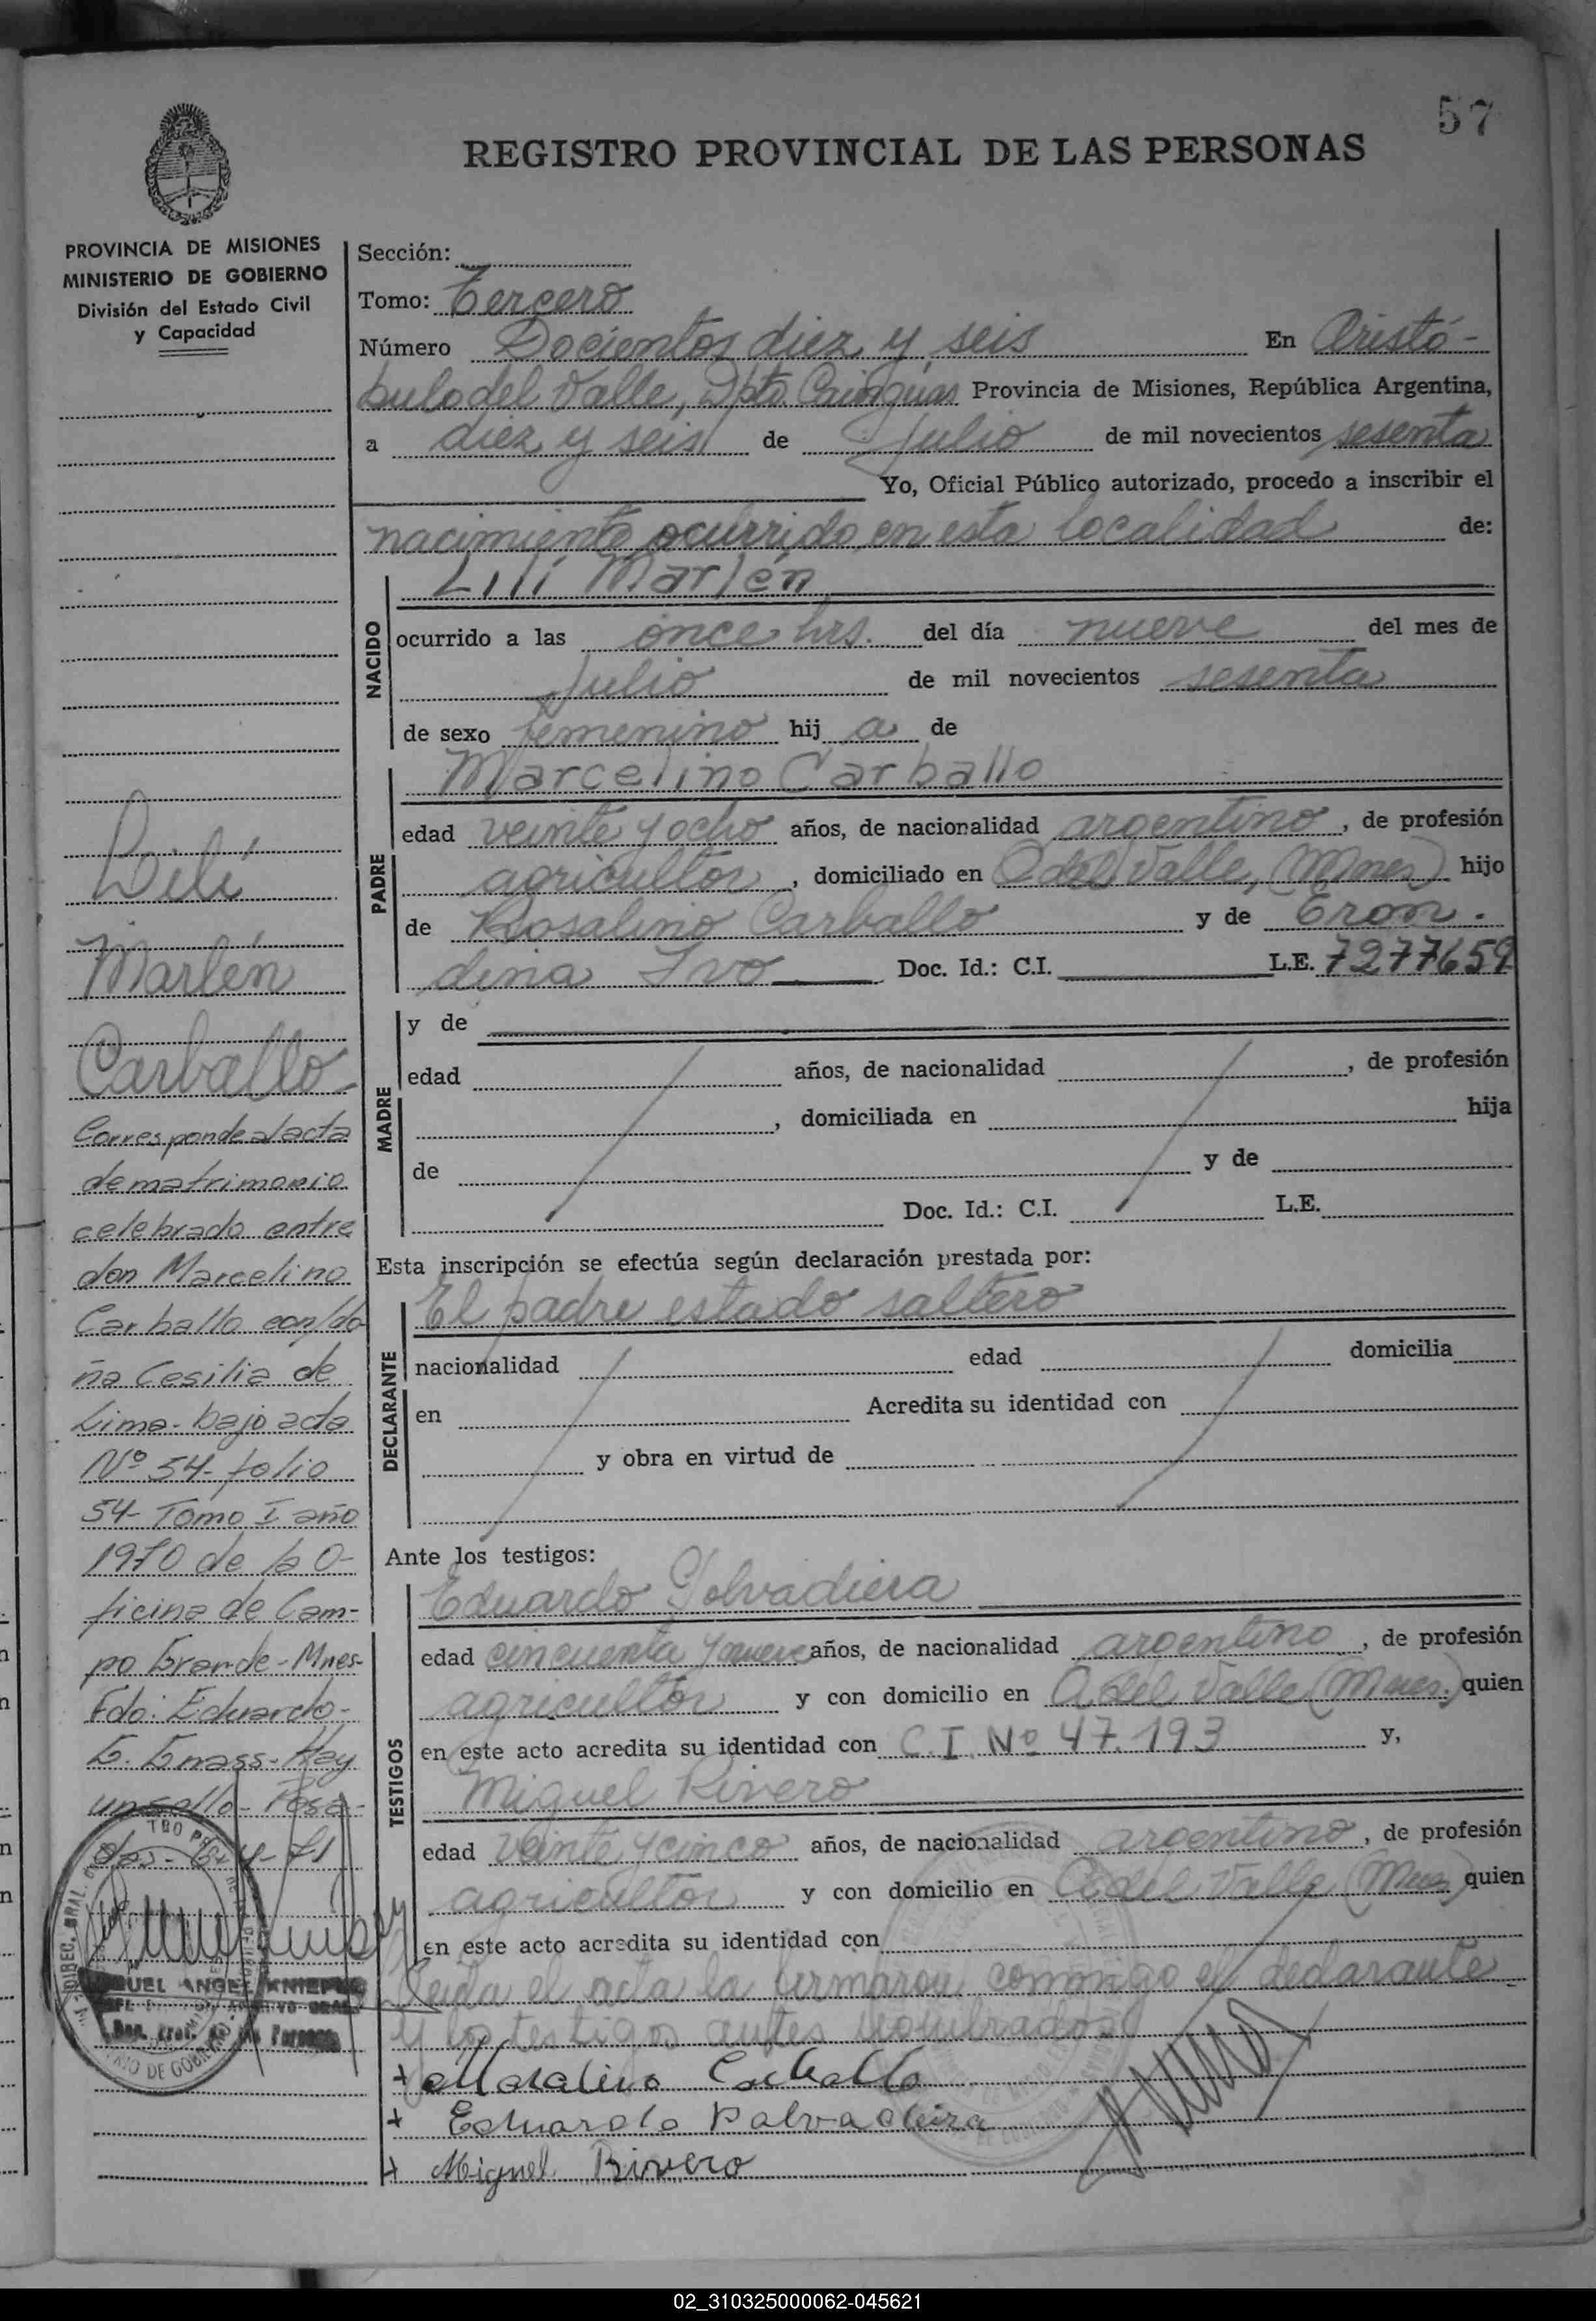 57
REGISTRO PROVINCIAL DE LAS PERSONAS
PROVINCIA DE MISIONES
MINISTERIO DE GOBIERNO
División del Estado Civil
y Capacidad
Lilí
Marlén
Carballo
Corresponde al acta
de matrimonio
celebrado entre
don Marcelino
Carballo con do
ña Cesilia de
Lima - bajo acta
Nº 54 - folio
54 - Tomo I año
1970 de la O-
ficina de Cam-
po Grande - Mnes-
Fdo: Eduardo-
G. Gnass - Hay
un sello - Posa-
das -
Sección:
Tomo: Tercero
Número Docientos diez y seis En Aristó-
bulo del Valle, Dpto. Cainguás Provincia de Misiones, República Argentina,
a diez y seis de Julio de mil novecientos sesenta
Yo, Oficial Público autorizado, procedo a inscribir el
nacimiento ocurrido en esta localidad de:
NACIDO
Lilí Marlén
ocurrido a las once hrs. del día nueve del mes de
Julio de mil novecientos sesenta
de sexo femenino hij a de
PADRE
Marcelino Carballo
edad veinte y ocho años, de nacionalidad argentino, de profesión
agricultor, domiciliado en A del Valle, (Mnes) hijo
de Rosalino Carballo y de Eron.
dina Ivo Doc. Id.: C.I. L.E. 7277659
MADRE
y de
edad años, de nacionalidad , de profesión
, domiciliada en hija
de y de
Doc. Id.: C.I. L.E.
Esta inscripción se efectúa según declaración prestada por:
DECLARANTE
El padre estado saltero
nacionalidad edad domicilia
en Acredita su identidad con
y obra en virtud de
Ante los testigos:
TESTIGOS
Eduardo Polvadiera
edad cincuenta y nueve años, de nacionalidad argentino, de profesión
agricultor y con domicilio en A. del Valle (Mnes. quien
en este acto acredita su identidad con C.I. Nº 47.193 y,
Miguel Rivero
edad veinte y cinco años, de nacionalidad argentino, de profesión
agricultor y con domicilio en A. del Valle (Mnes quien
en este acto acredita su identidad con
Leida el acta la firmaron conmigo el declarante
y los testigos antes nombrados
+ Marcalino Carballo
+ Eduardo Palvadeira
+ Miguel Rivero
02_310325000062-045621